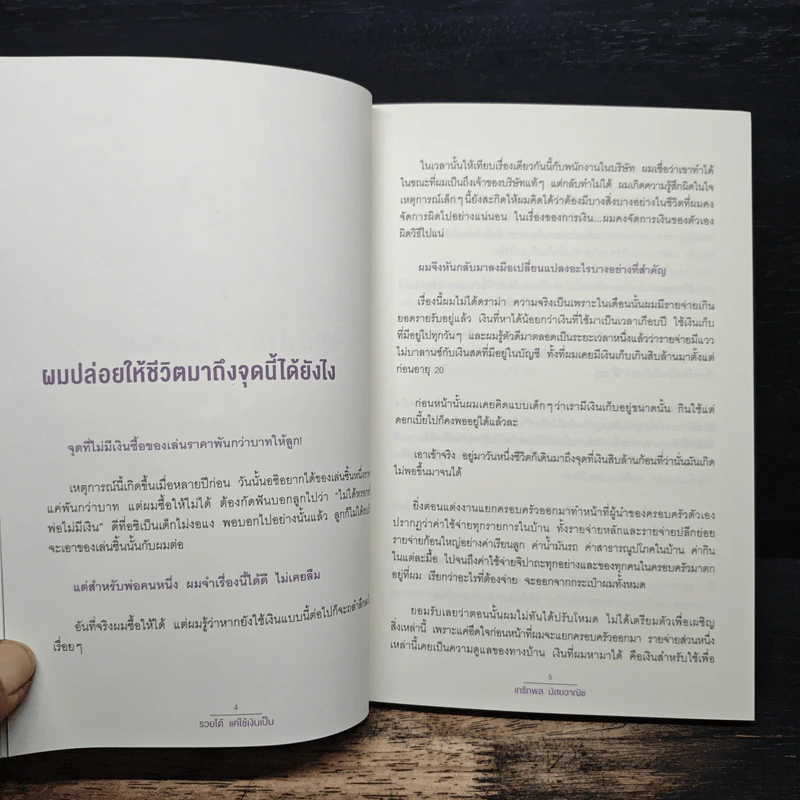 ผมปล่อยให้ชีวิตมาถึงจุดนี้ได้ยังไง
จุดที่ไม่มีเงินซื้อของเล่นราคาพันกว่าบาทให้ลูก!
เหตุการณ์นี้เกิดขึ้นเมื่อหลายปีก่อน วันนั้นอธิอยากได้ของเล่นชิ้นหนึ่ง
แค่พันกว่าบาท แต่ผมซื้อให้ไม่ได้ ต้องกัดฟันบอกลูกไปว่า "ไม่ได้หรอก
พ่อไม่มีเงิน" ดีที่อธิเป็นเด็กไม่งอแง พอบอกไปอย่างนั้นแล้ว ลูกก็ไม่ได้
จะเอาของเล่นชิ้นนั้นกับผมต่อ
แต่สำหรับพ่อคนหนึ่ง ผมจำเรื่องนี้ได้ดี ไม่เคยลืม
อันที่จริงผมซื้อให้ได้ แต่ผมรู้ว่าหากยังใช้เงินแบบนี้ต่อไปก็จะถลำลึก
เรื่อยๆ
4
รวยได้ แค่ใช้เงินเป็น
ในเวลานั้นให้เทียบเรื่องเดียวกันนี้กับพนักงานในบริษัท ผมเชื่อว่าเขาทำได้
ในขณะที่ผมเป็นถึงเจ้าของบริษัทแท้ๆ แต่กลับทำไม่ได้ ผมเกิดความรู้สึกผิดในใจ
เหตุการณ์เล็กๆ นี้ยังสะกิดให้ผมคิดได้ว่าต้องมีบางสิ่งบางอย่างในชีวิตที่ผมคง
จัดการผิดไปอย่างแน่นอน ในเรื่องของการเงิน...ผมคงจัดการเงินของตัวเอง
ผิดวิธีไปแน่
ผมจึงหันกลับมาลงมือเปลี่ยนแปลงอะไรบางอย่างที่สำคัญ
เรื่องนี้ผมไม่ได้ดราม่า ความจริงเป็นเพราะในเดือนนั้นผมมีรายจ่ายเกิน
ยอดรายรับอยู่แล้ว เงินที่หาได้น้อยกว่าเงินที่ใช้มาเป็นเวลาเกือบปี ใช้เงินเก็บ
ที่มีอยู่ไปทุกวันๆ และผมรู้ตัวดีมาตลอดเป็นระยะเวลาหนึ่งแล้วว่ารายจ่ายมีแวว
ไม่บาลานซ์กับเงินสดที่มีอยู่ในบัญชี ทั้งที่ผมเคยมีเงินเก็บเกินสิบล้านมาตั้งแต่
ก่อนอายุ 20
ก่อนหน้านั้นผมเคยคิดแบบเด็กๆ ว่าเรามีเงินเก็บอยู่ขนาดนั้น กินใช้แต่
ดอกเบี้ยไปก็คงพออยู่ได้แล้วละ
เอาเข้าจริง อยู่มาวันหนึ่งชีวิตก็เดินมาถึงจุดที่เงินสิบล้านก้อนที่ว่านั่นมันเกิด
ไม่พอขึ้นมาจนได้
ยิ่งตอนแต่งงานแยกครอบครัวออกมาทำหน้าที่ผู้นำของครอบครัวตัวเอง
ปรากฏว่าค่าใช้จ่ายทุกรายการในบ้าน ทั้งรายจ่ายหลักและรายจ่ายปลีกย่อย
รายจ่ายก้อนใหญ่อย่างค่าเรียนลูก ค่าน้ำมันรถ ค่าสาธารณูปโภคในบ้าน ค่ากิน
ในแต่ละมื้อ ไปจนถึงค่าใช้จ่ายจิปาถะทุกอย่างและของทุกคนในครอบครัวมาตก
อยู่ที่ผม เรียกว่าอะไรที่ต้องจ่าย จะออกจากกระเป๋าผมทั้งหมด
ยอมรับเลยว่าตอนนั้นผมไม่ทันได้ปรับโหมด ไม่ได้เตรียมตัวเพื่อเผชิญ
สิ่งเหล่านี้ เพราะแค่อึดใจก่อนหน้าที่ผมจะแยกครอบครัวออกมา รายจ่ายส่วนหนึ่ง
เหล่านี้เคยเป็นความดูแลของทางบ้าน เงินที่ผมหามาได้ คือเงินสำหรับใช้เพื่อ
5
เกริกพล มัสยวาณิช